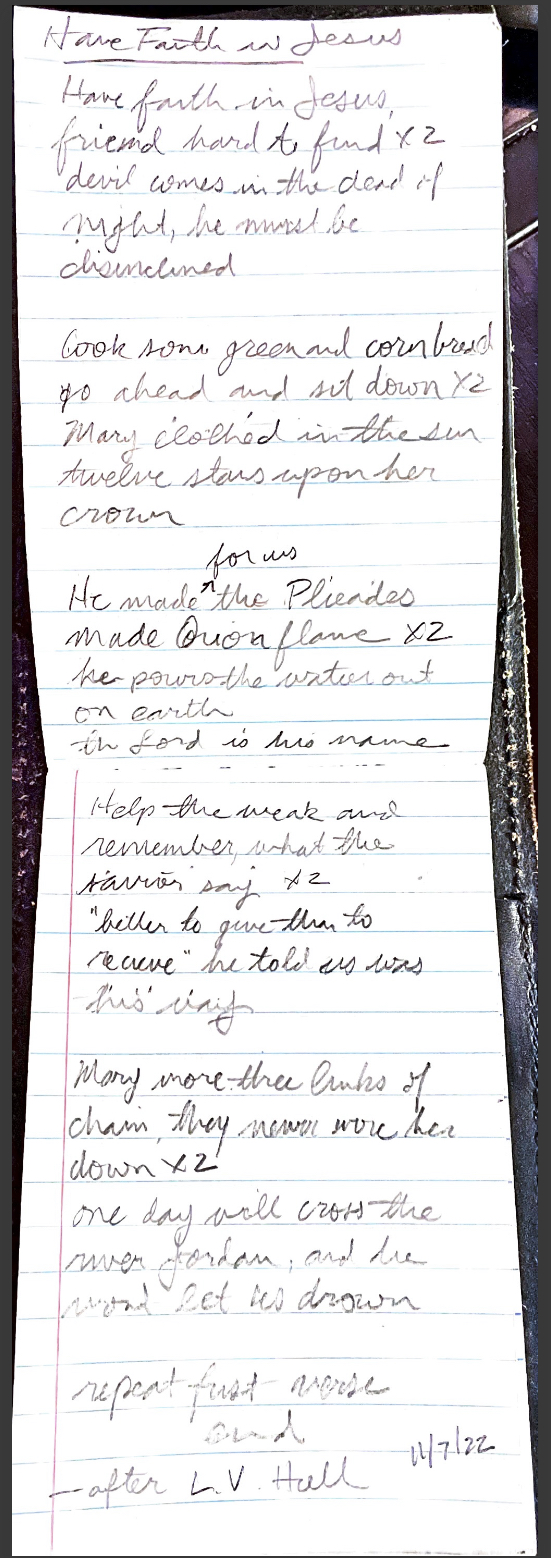 Have Faith in Jesus
Have faith in Jesus,
friend hard to find X2
devil comes in the dead of
night, he must be
disinclined
Cook some green and cornbread
go ahead and sit down X2
Mary clothed in the sun
twelve stars upon her
crown
for us
He made the Plieades
made Orion flame X2
he pours the water out
on earth
th Lord is his name
Help the weak and
remember, what the
savior say X2
"better to give than to
recieve" he told us was
his way
Mary wore three links of
chain, they never wore her
down X2
one day will cross the
river Jordan, and he
wond let us drown
repeat first verse
end
11/7/22
—after L.V. Hall